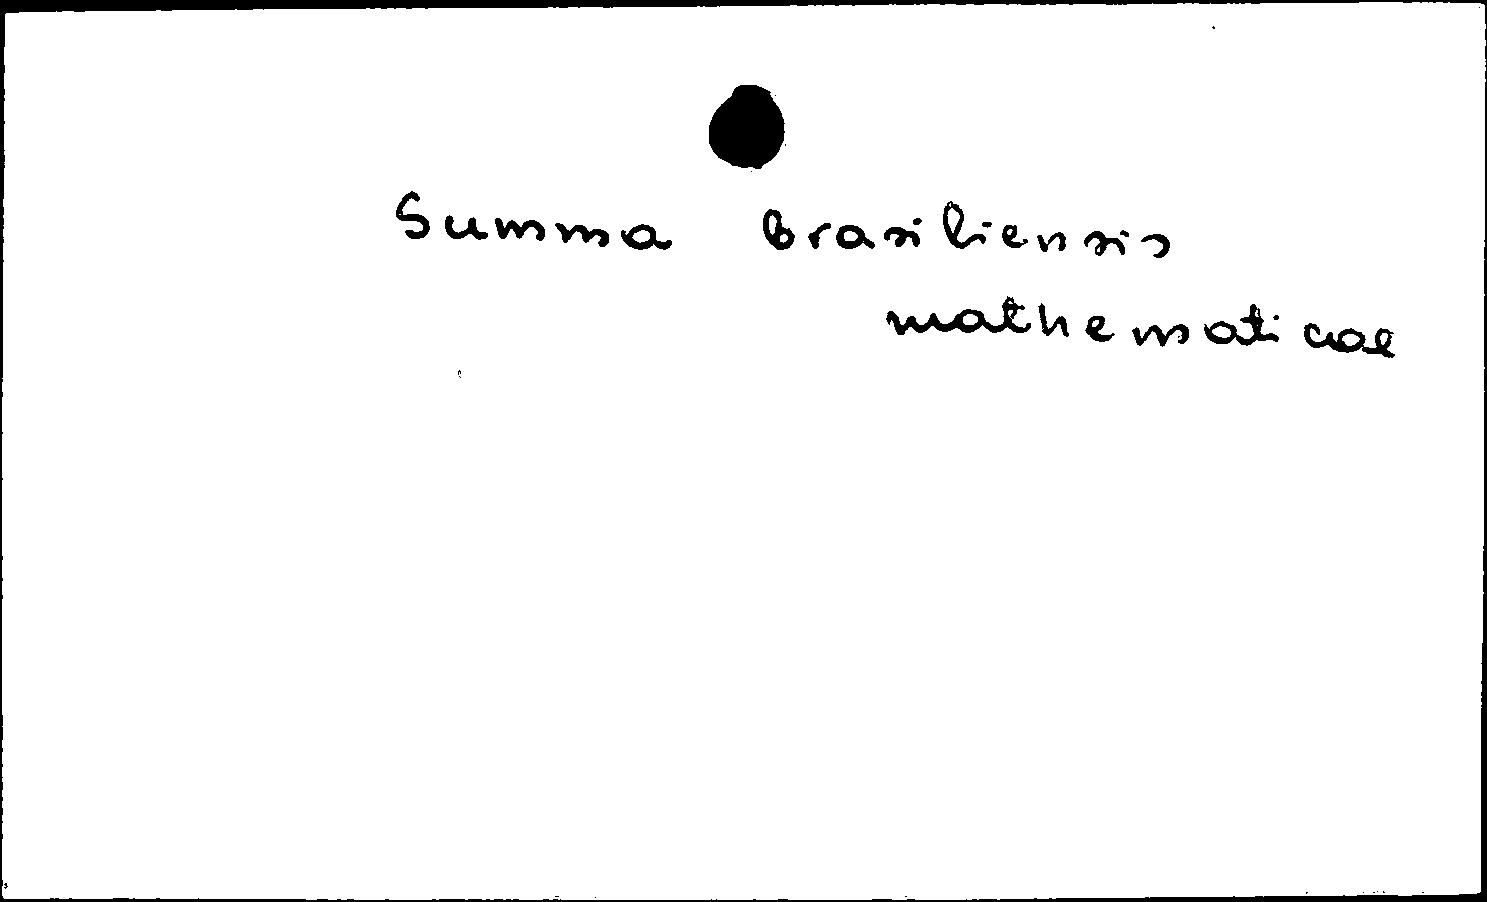 Summa brasiliensis
mathematicae